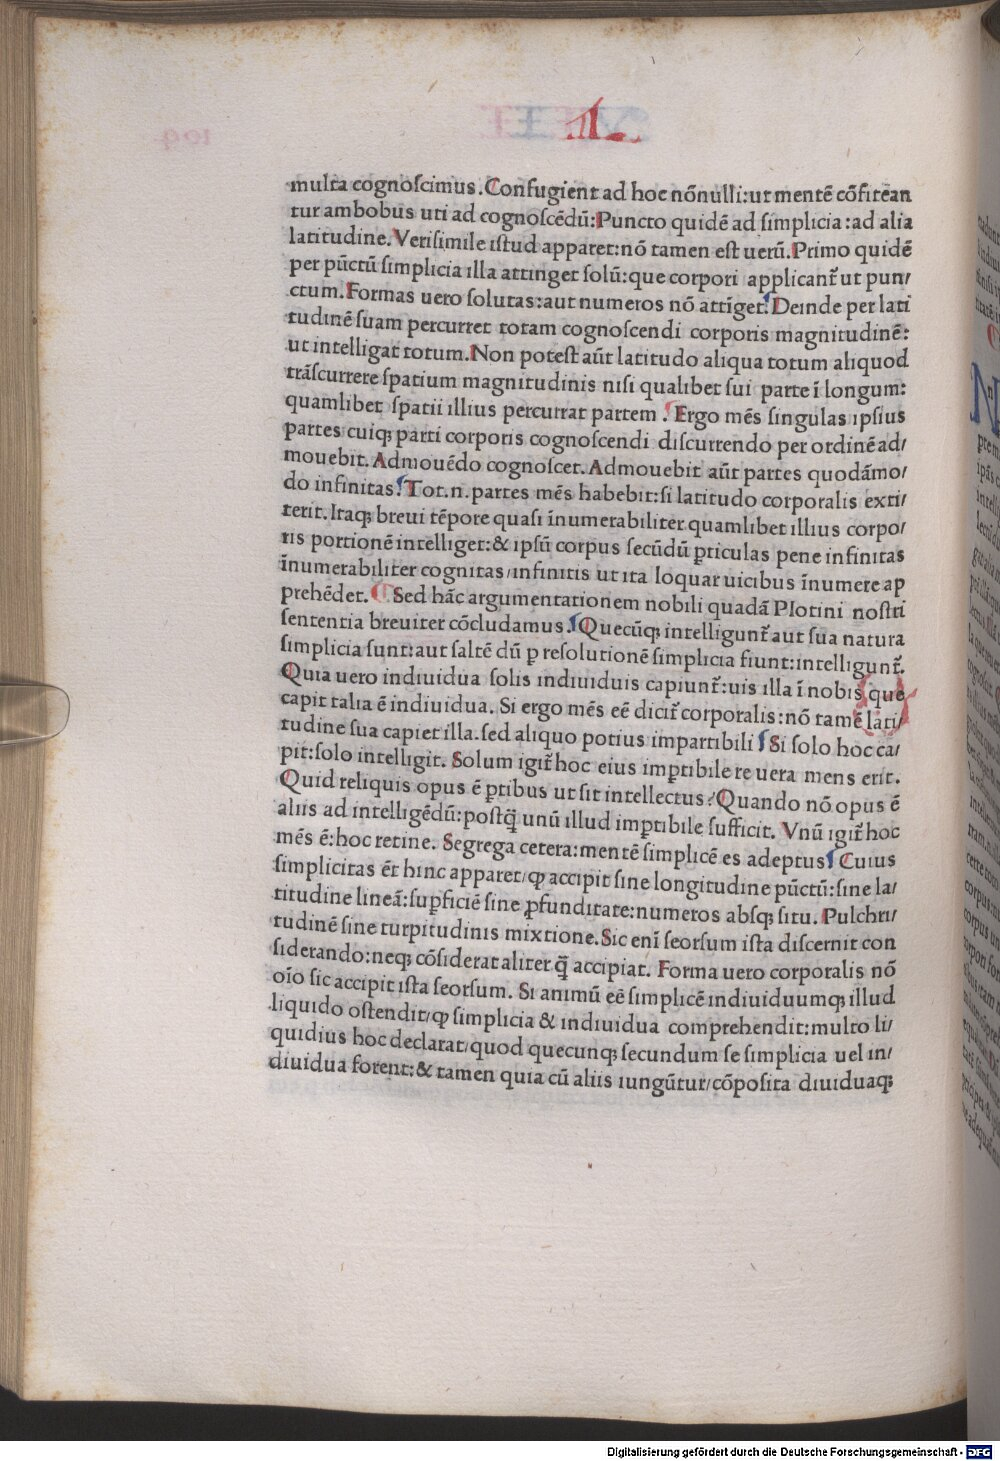 L
multa cognoſcimus. Confugient ad hoc nōnulli: ut mentē cōfitēan
tur ambobus uti ad cognoſcēdū: Puncto quidē ad ſimplicia: ad alia
latitudine. Veriſimile iſtud apparet: nō tamen eſt uerū. Primo quidē
per pūctū ſimplicia illa attinget ſolū: que corpori applicant᷑ ut pun/
ctum. Formas uero ſolutas: aut numeros nō attīget. Deinde per lati
tudinē ſuam percurret totam cognoſcendi corporis magnitudinē:
ut intelligat totum. Non poteſt aūt latitudo aliqua totum aliquod
trāſcurrere ſpatium magnitudinis niſi qualibet ſui parte ī longum:
quamlibet ſpatii illius percurrat partem. Ergo mēs ſingulas ipſius
partes cuiq; parti corporis cognoſcendi diſcurrendo per ordinē ad/
mouebit. Admouēdo cognoſcet. Admouebit aūt partes quodāmo/
do infinitas. Tot .n. partes mēs habebit: ſi latitudo corporalis exti/
terit. Itaq; breui tēpore quaſi īnumerabiliter quamlibet illius corpo/
ris portionē intelliget: & ipſū corpus ſecūdū ꝑticulas pene infinitas
īnumerabiliter cognitas/infinitis ut ita loquar uicibus īnumere ap
prehēdet. Sed hāc argumentationem nobili quadā Plotini noſtri
ſententia breuiter cōcludamus. Quecūq; intelligunt᷑ aut ſua natura
ſimplicia ſunt: aut ſaltē dū ꝑ reſolutionē ſimplicia fiunt: intelligunt᷑.
Quia uero indiuidua ſolis indiuiduis capiunt᷑: uis illa ī nobis que
capit talia ē indiuidua. Si ergo mēs eē dicit᷑ corporalis: nō tamē lati/
tudine ſua capiet illa. ſed aliquo potius impartibili Si ſolo hoc ca/
pit: ſolo intelligit. Solum igit᷑ hoc eius imꝑtibile re uera mens erit.
Quid reliquis opus ē ꝑtibus ut ſit intellectus? Quando nō opus ē
aliis ad intelligēdū: poſtq̄ unū illud imꝑtibile ſufficit. Vnū igit᷑ hoc
mēs ē: hoc retine. Segrega cetera: mentē ſimplicē es adeptus Cuius
ſimplicitas ēt hinc apparet/ꝙ accipit ſine longitudine pūctū: ſine la/
titudine lineā: ſuꝑficiē ſine ꝓfunditate: numeros abſq; ſitu. Pulchri/
tudinē ſine turpitudinis mixtione. Sic enī ſeorſum iſta diſcernit con
ſiderando: neq; cōſiderat aliter q̄ accipiat. Forma uero corporalis nō
oīo ſic accipit iſta ſeorſum. Si animū eē ſimplicē indiuiduumq; illud
liquido oſtendit/ꝙ ſimplicia & indiuidua comprehendit: multo li/
quidius hoc declarat/quod quecunq; ſecundum ſe ſimplicia uel in/
diuidua forent: & tamen quia cū aliis iungūtur/cōpoſita diuiduaq;
Digitalisierung gefördert durch die Deutsche Forschungsgemeinschaft - DFG